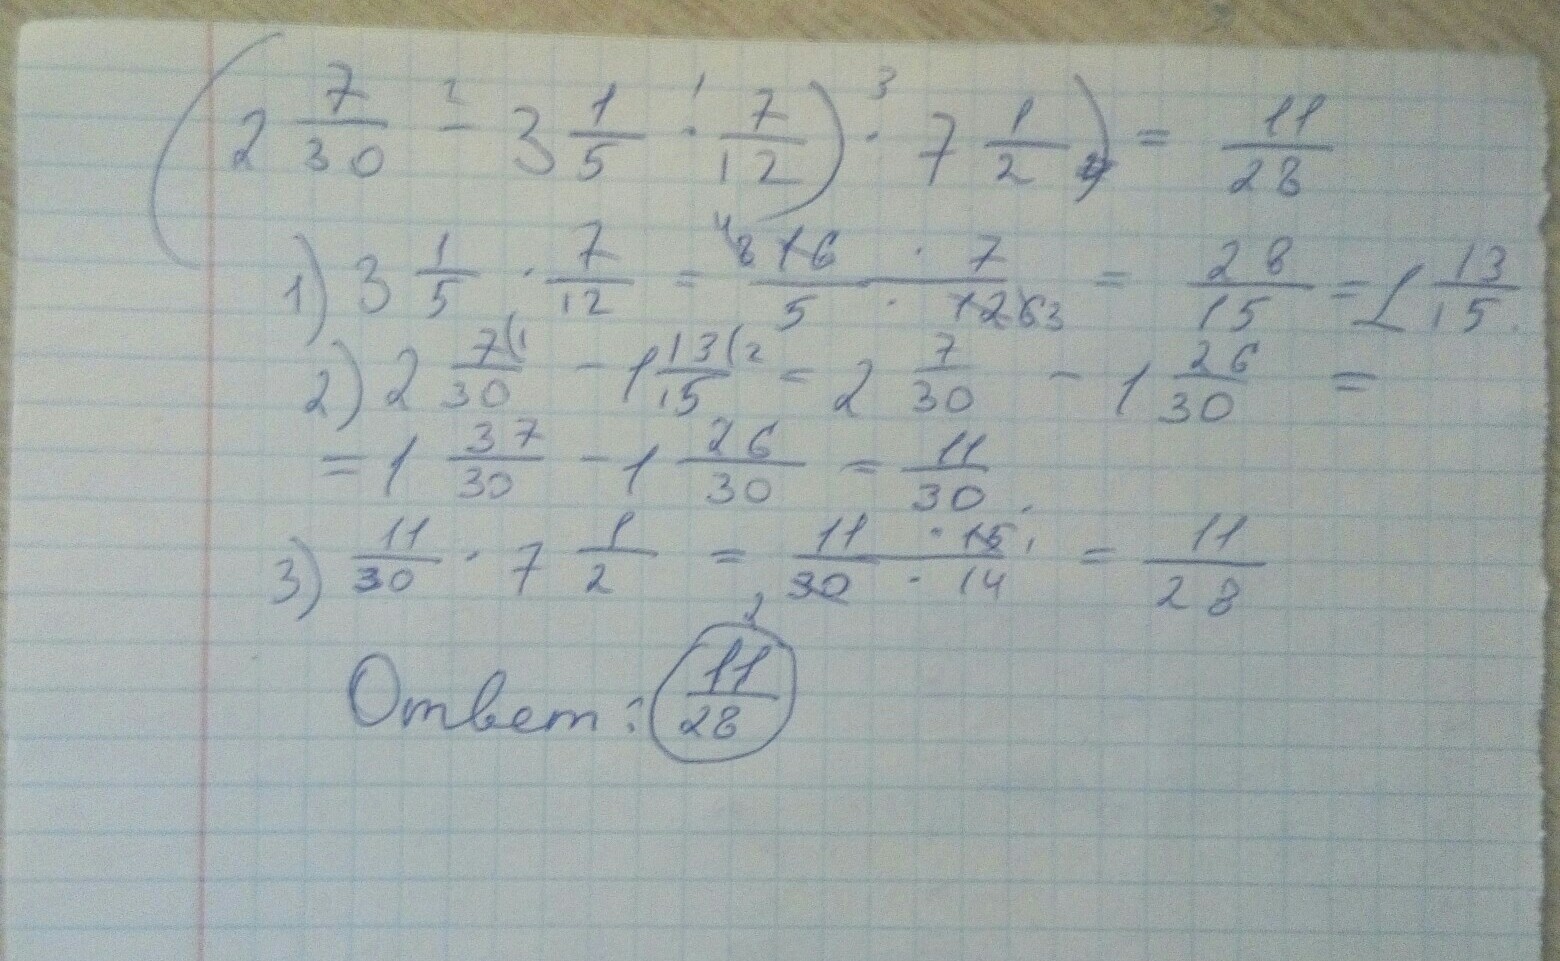 (2 7/30 −² 3 1/5 ·¹ 7/12) ·³ 7 1/2) = 11/28
1) 3 1/5 · 7/12 = 4 8 16 · 7 / 5 · 12 6 3 = 28/15 = 1 13/15.
2) 2 7(1/30 − 1 13(2/15 = 2 7/30 − 1 26/30 =
= 1 37/30 − 1 26/30 = 11/30.
3) 11/30 · 7 1/2 = 11 · 15 1 / 30 2 · 14 = 11/28
Ответ: 11/28